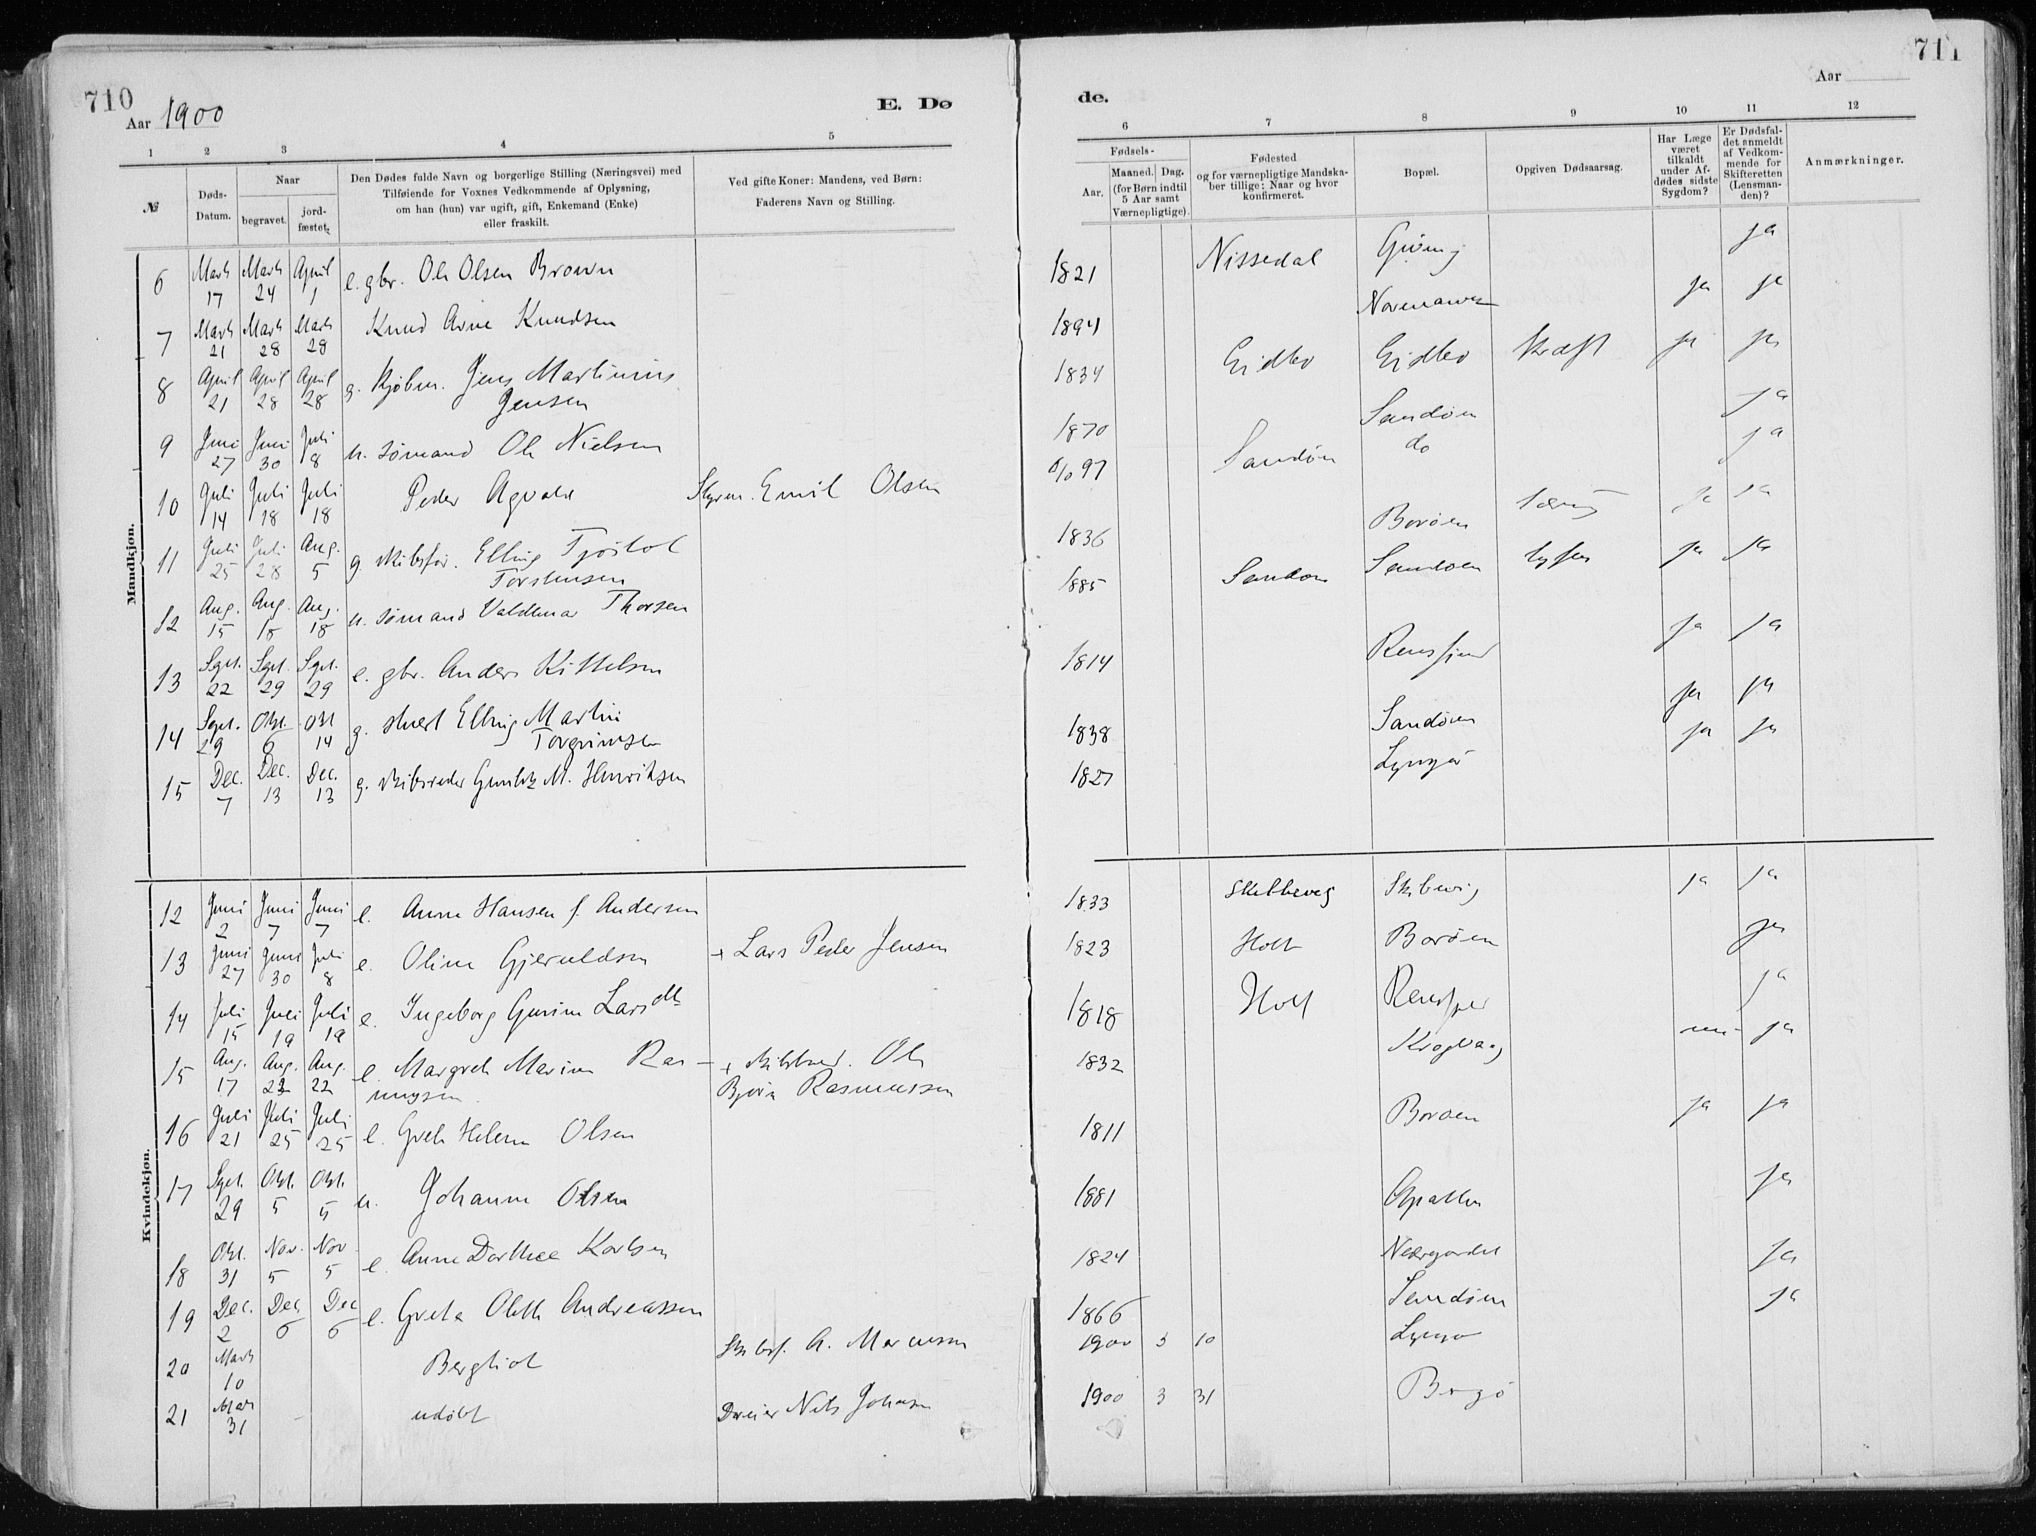 710
Aar 1900
E. Dø
1 2 3 4 5
№
Døds-Datum.
Naar
begravet.
jord-fæstet.
Den Dødes fulde Navn og borgerlige Stilling (Næringsvei) med
Tilføiende for Voxnes Vedkommende af Oplysning,
om han (hun) var ugift, gift, Enkemand (Enke)
eller fraskilt.
Ved gifte Koner: Mandens, ved Børn:
Faderens Navn og Stilling.
Mandkjøn.
6 Marts 17 Marts 24 April 1 e. gbr. Ole Olsen Brown
7 Marts 21 Marts 28 Marts 29 Knud Arne Knudsen
8 April 21 April 28 April 28 g. Kjøbm. Jens Martinius
Jensen
9 Juni 27 Juni 30 Juli 8 u. sømand Ole Nielsen
10 Juli 14 Juli 18 Juli 18 Peder Agvald Styrm. Emil Olsen
11 Juli 25 Juli 28 Aug. 5 g. skibsfør. Elling Tjøstol
Torstensen
12 Aug. 15 Aug. 18 Aug. 18 u. sømand Valdemar Thorsen
13 Sept. 22 Sept. 29 Sept. 29 e. gbr. Anders Kittelsen
14 Sept. 29 Okt. 6 Okt 14 g. Elling Martin
Torgrimsen
15 Dec. 7 Dec. 13 Dec. 13 g. skibsreder M. Henriksen
Kvindekjøn.
12 Juni 2 Juni 7 Juni 7 e. Anne Hansen f. Andersen
13 Juni 27 Juni 30 Juli 8 e. Oline Gjeruldsen + Lars Peder Jensen
14 Juli 15 Juli 19 Juli 19 e. Ingeborg Gurine Larsdtr
15 Aug. 17 Aug. 22 Aug. 22 e. Margreth Marine Ras- + Ole
mussen Bjørn Rasmussen
16 Juli 21 Juli 25 Juli 25 e. Grete Helene Olsen
17 Sept. 29 Okt. 5 Okt. 5 u. Johanne Olsen
18 Okt. 31 Nov. 5 Nov 5 e. Anne Dorthea Karlsen
19 Dec. 2 Dec. 6 Dec 6 e. Grete Oleth Andreassen
20 Marts 10 Bergliot Skibsf. A. Marcussen
21 Mar 31 - - udøbt Nils Johnsen
711
Aar
de.
6 7 8 9 10 11 12
Fødsels-
Aar.
Maaned. Dag.
(for Børn indtil
5 Aar samt
Værnepligtige).
Fødested
og for værnepligtige Mandska-
ber tillige: Naar og hvor
konfirmeret.
Bopæl.
Opgiven Dødsaarsag.
Har Læge
været
tilkaldt
under Af-
dødes sidste
Sygdom?
Er Dødsfal-
det anmeldt
af Vedkom-
mende for
Skifteretten
(Lensman-
den)?
Anmærkninger.
1821 Nissedal Gjeving ja
1894 ja ja
1834 Eidbo Eidbo Kræft ja ja
1870 Sandøen ja
97 Sandøen do ja
1836 Borøen ja ja
1885 Sandøen Sandøen tyfus ja ja
1814 ja ja
1838 Sandøen ja ja
1827 Lyngør ja ja
1833 Skibbeveg Skibevig ja ja
1823 Holt Borøen ja
1818 Holt ja
1832 Kragvaag nei ja
1811 Borøen ja ja
1881 ja
1824 Nedregardet ja
1866 Sandøen ja
1900 3 10 Lyngø
1900 3 31